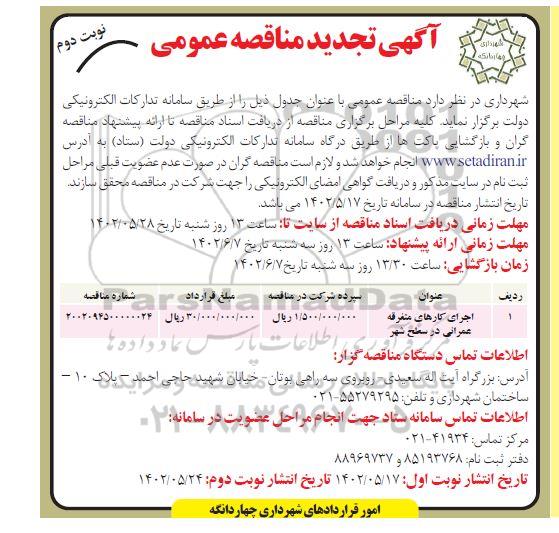 نوبت دوم
آگهی تجدید مناقصه عمومی
شهرداری
چهاردانگه
شهرداری در نظر دارد مناقصه عمومی با عنوان جدول ذیل را از طریق سامانه تدارکات الکترونیکی
دولت برگزار نماید. کلیه مراحل برگزاری مناقصه از دریافت اسناد مناقصه تا ارائه پیشنهاد مناقصه
گران و بازگشایی پاکت ها از طریق درگاه سامانه تدارکات الکترونیکی دولت (ستاد) به آدرس
www.setadiran.ir انجام خواهد شد و لازم است مناقصه گران در صورت عدم عضویت قبلی مراحل
ثبت نام در سایت مذکور و دریافت گواهی امضای الکترونیکی را جهت شرکت در مناقصه محقق سازند.
تاریخ انتشار مناقصه در سامانه تاریخ ۱۴۰۲/۵/۱۷ می باشد.
مهلت زمانی دریافت اسناد مناقصه از سایت تا: ساعت ۱۳ روز شنبه تاریخ ۱۴۰۲/۰۵/۲۸
مهلت زمانی ارائه پیشنهاد: ساعت ۱۳ روز سه شنبه تاریخ ۱۴۰۲/۶/۷
زمان بازگشایی: ساعت ۱۳/۳۰ روز سه شنبه تاریخ ۱۴۰۲/۶/۷
ردیف عنوان سپرده شرکت در مناقصه مبلغ قرارداد شماره مناقصه
۱ اجرای کارهای متفرقه ۱/۵۰۰/۰۰۰/۰۰۰ ریال ۳۰/۰۰۰/۰۰۰/۰۰۰ ریال ۲۰۰۲۰۹۴۵۰۰۰۰۰۰۲۴
عمرانی در سطح شهر
ParsNamadData
اطلاعات تماس دستگاه مناقصه گزار:
آدرس: بزرگراه آیت اله سعیدی- روبروی سه راهی بوتان- خیابان شهید حاجی احمد – پلاک ۱۰ –
ساختمان شهرداری و تلفن: ۵۵۲۷۹۲۹۵-۰۲۱
اطلاعات تماس سامانه ستاد جهت انجام مراحل عضویت در سامانه:
مرکز تماس: ۴۱۹۳۴-۰۲۱
دفتر ثبت نام: ۸۵۱۹۳۷۶۸ و ۸۸۹۶۹۷۳۷
تاریخ انتشار نوبت اول: ۱۴۰۲/۰۵/۱۷ تاریخ انتشار نوبت دوم: ۱۴۰۲/۰۵/۲۴
امور قراردادهای شهرداری چهاردانگه